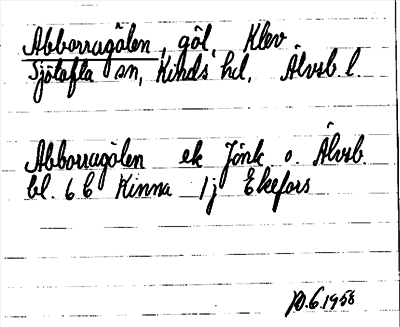 Abborragölen, göl, Klev
Sjötofta sn, Kinds hd, Älvsb l.
Abborragölen ek Jönk o. Älvsb.
bl. 6 C Kinna 1j Ekefors
10.6.1958